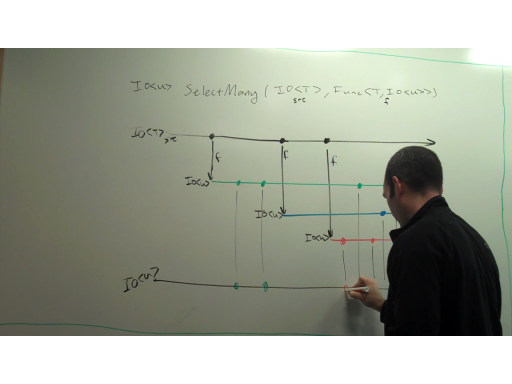 IO<u> SelectMany (IO<T>, Func<T, IO<u>>)
src f
IO<T> src
f f f
IO<u>
IO<u>
IO<u>
IO<u>